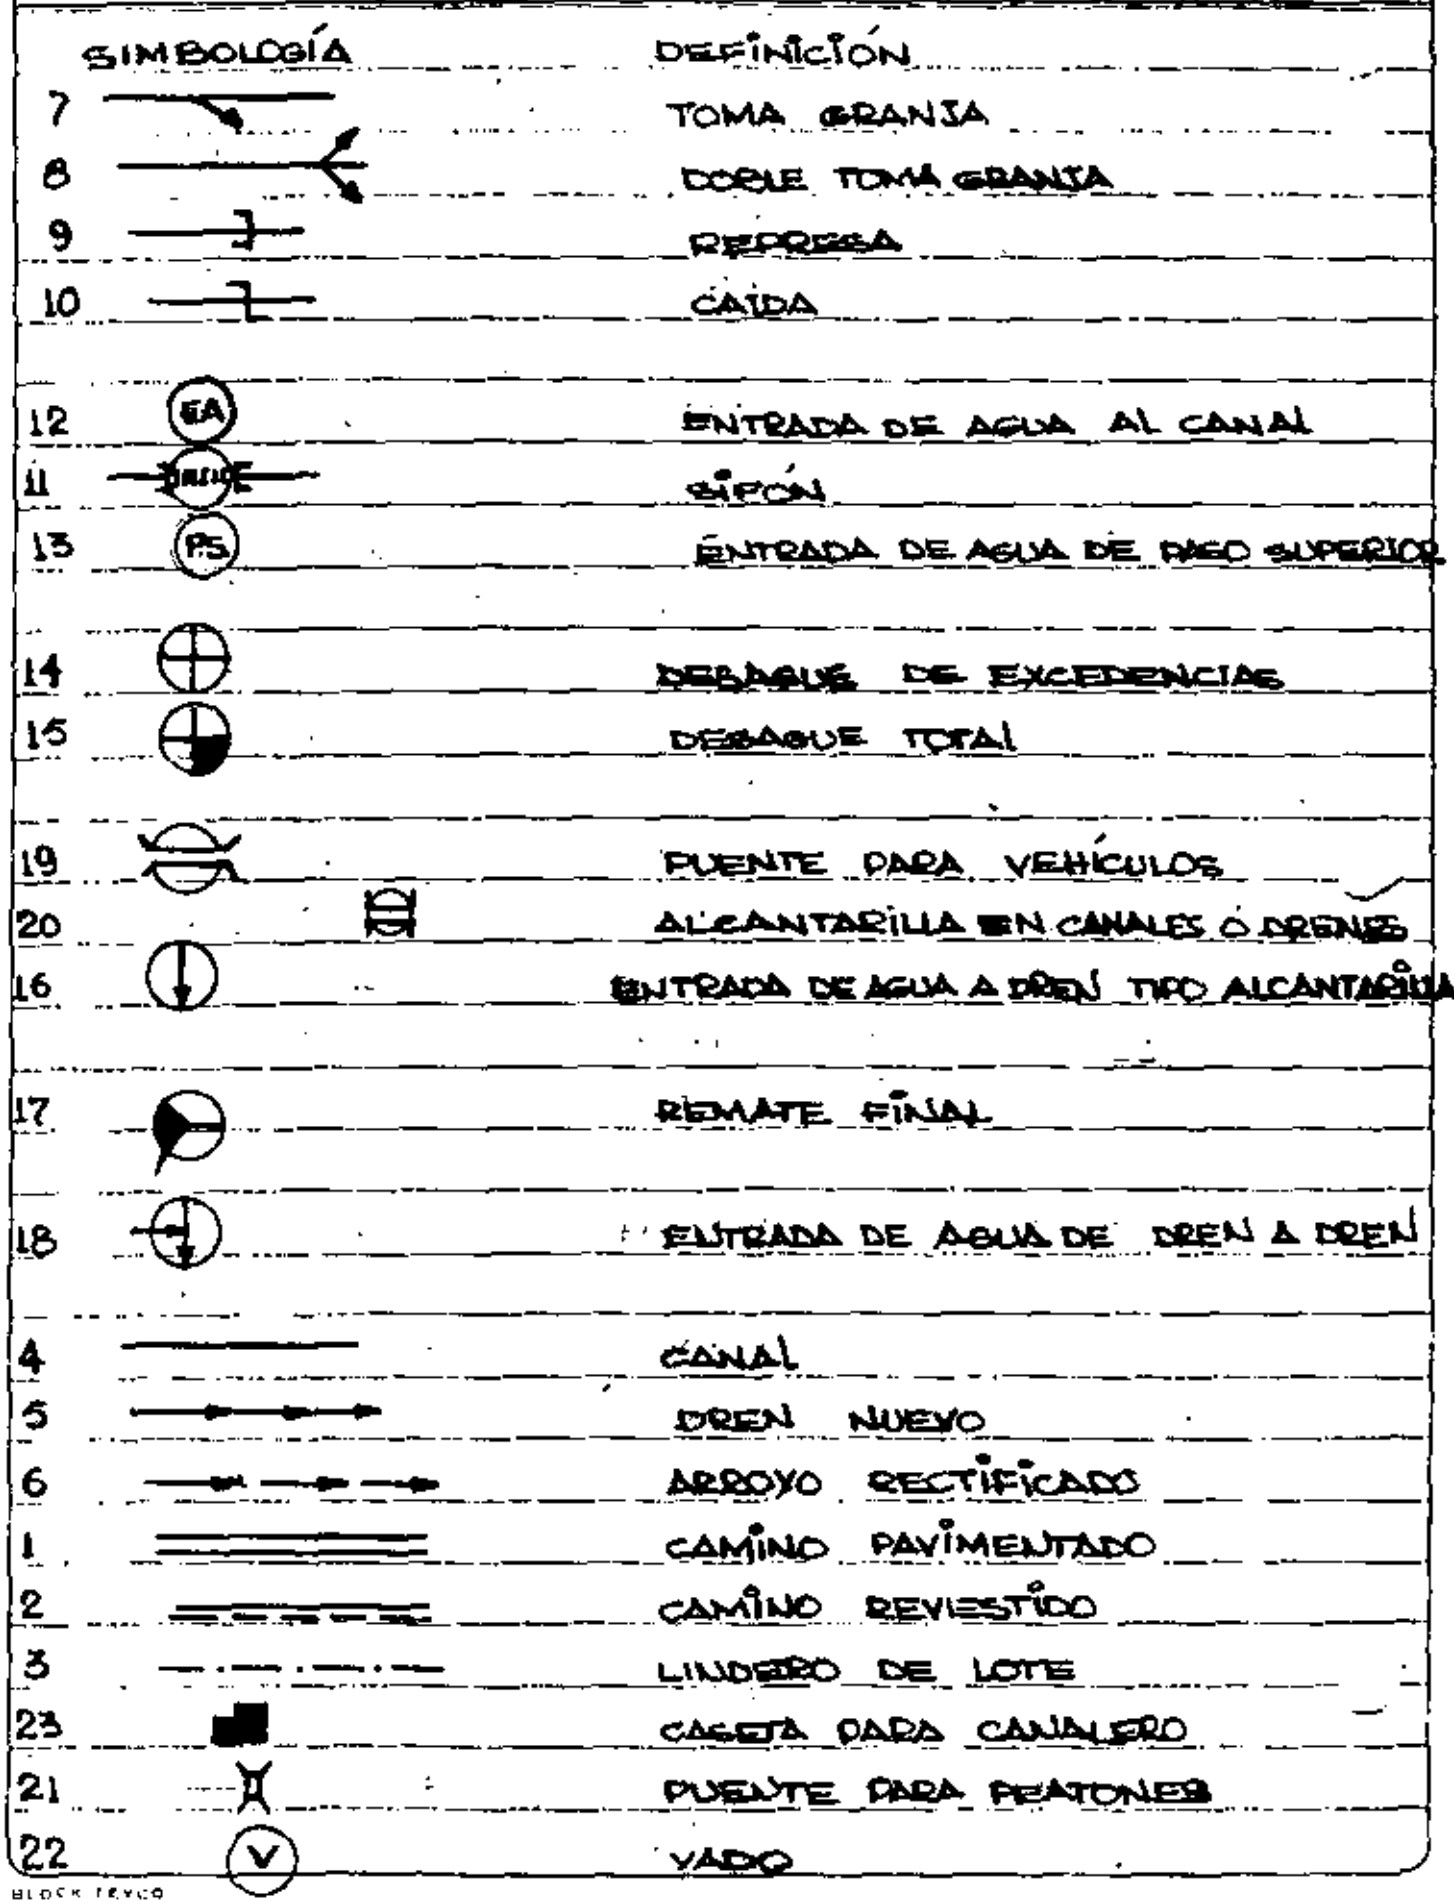 SIMBOLOGÍA DEFINICIÓN
7 TOMA GRANJA
8 DOBLE TOMA GRANJA
9 REPRESA
10 CAIDA
12 EA ENTRADA DE AGUA AL CANAL
11 SIFÓN
13 P.S ENTRADA DE AGUA DE PASO SUPERIOR
14 DESAGUE DE EXCEDENCIAS
15 DESAGUE TOTAL
19 PUENTE PARA VEHÍCULOS
20 ALCANTARILLA EN CANALES Ó DRENES
16 ENTRADA DE AGUA A DREN TIPO ALCANTARILLA
17 REMATE FINAL
18 ENTRADA DE AGUA DE DREN A DREN
4 CANAL
5 DREN NUEVO
6 ARROYO RECTIFICADO
1 CAMINO PAVIMENTADO
2 CAMINO REVIESTIDO
3 LINDERO DE LOTE
23 CASETA PARA CANALERO
21 PUENTE PARA PEATONES
22 V VADO
BLOCK TEYCO